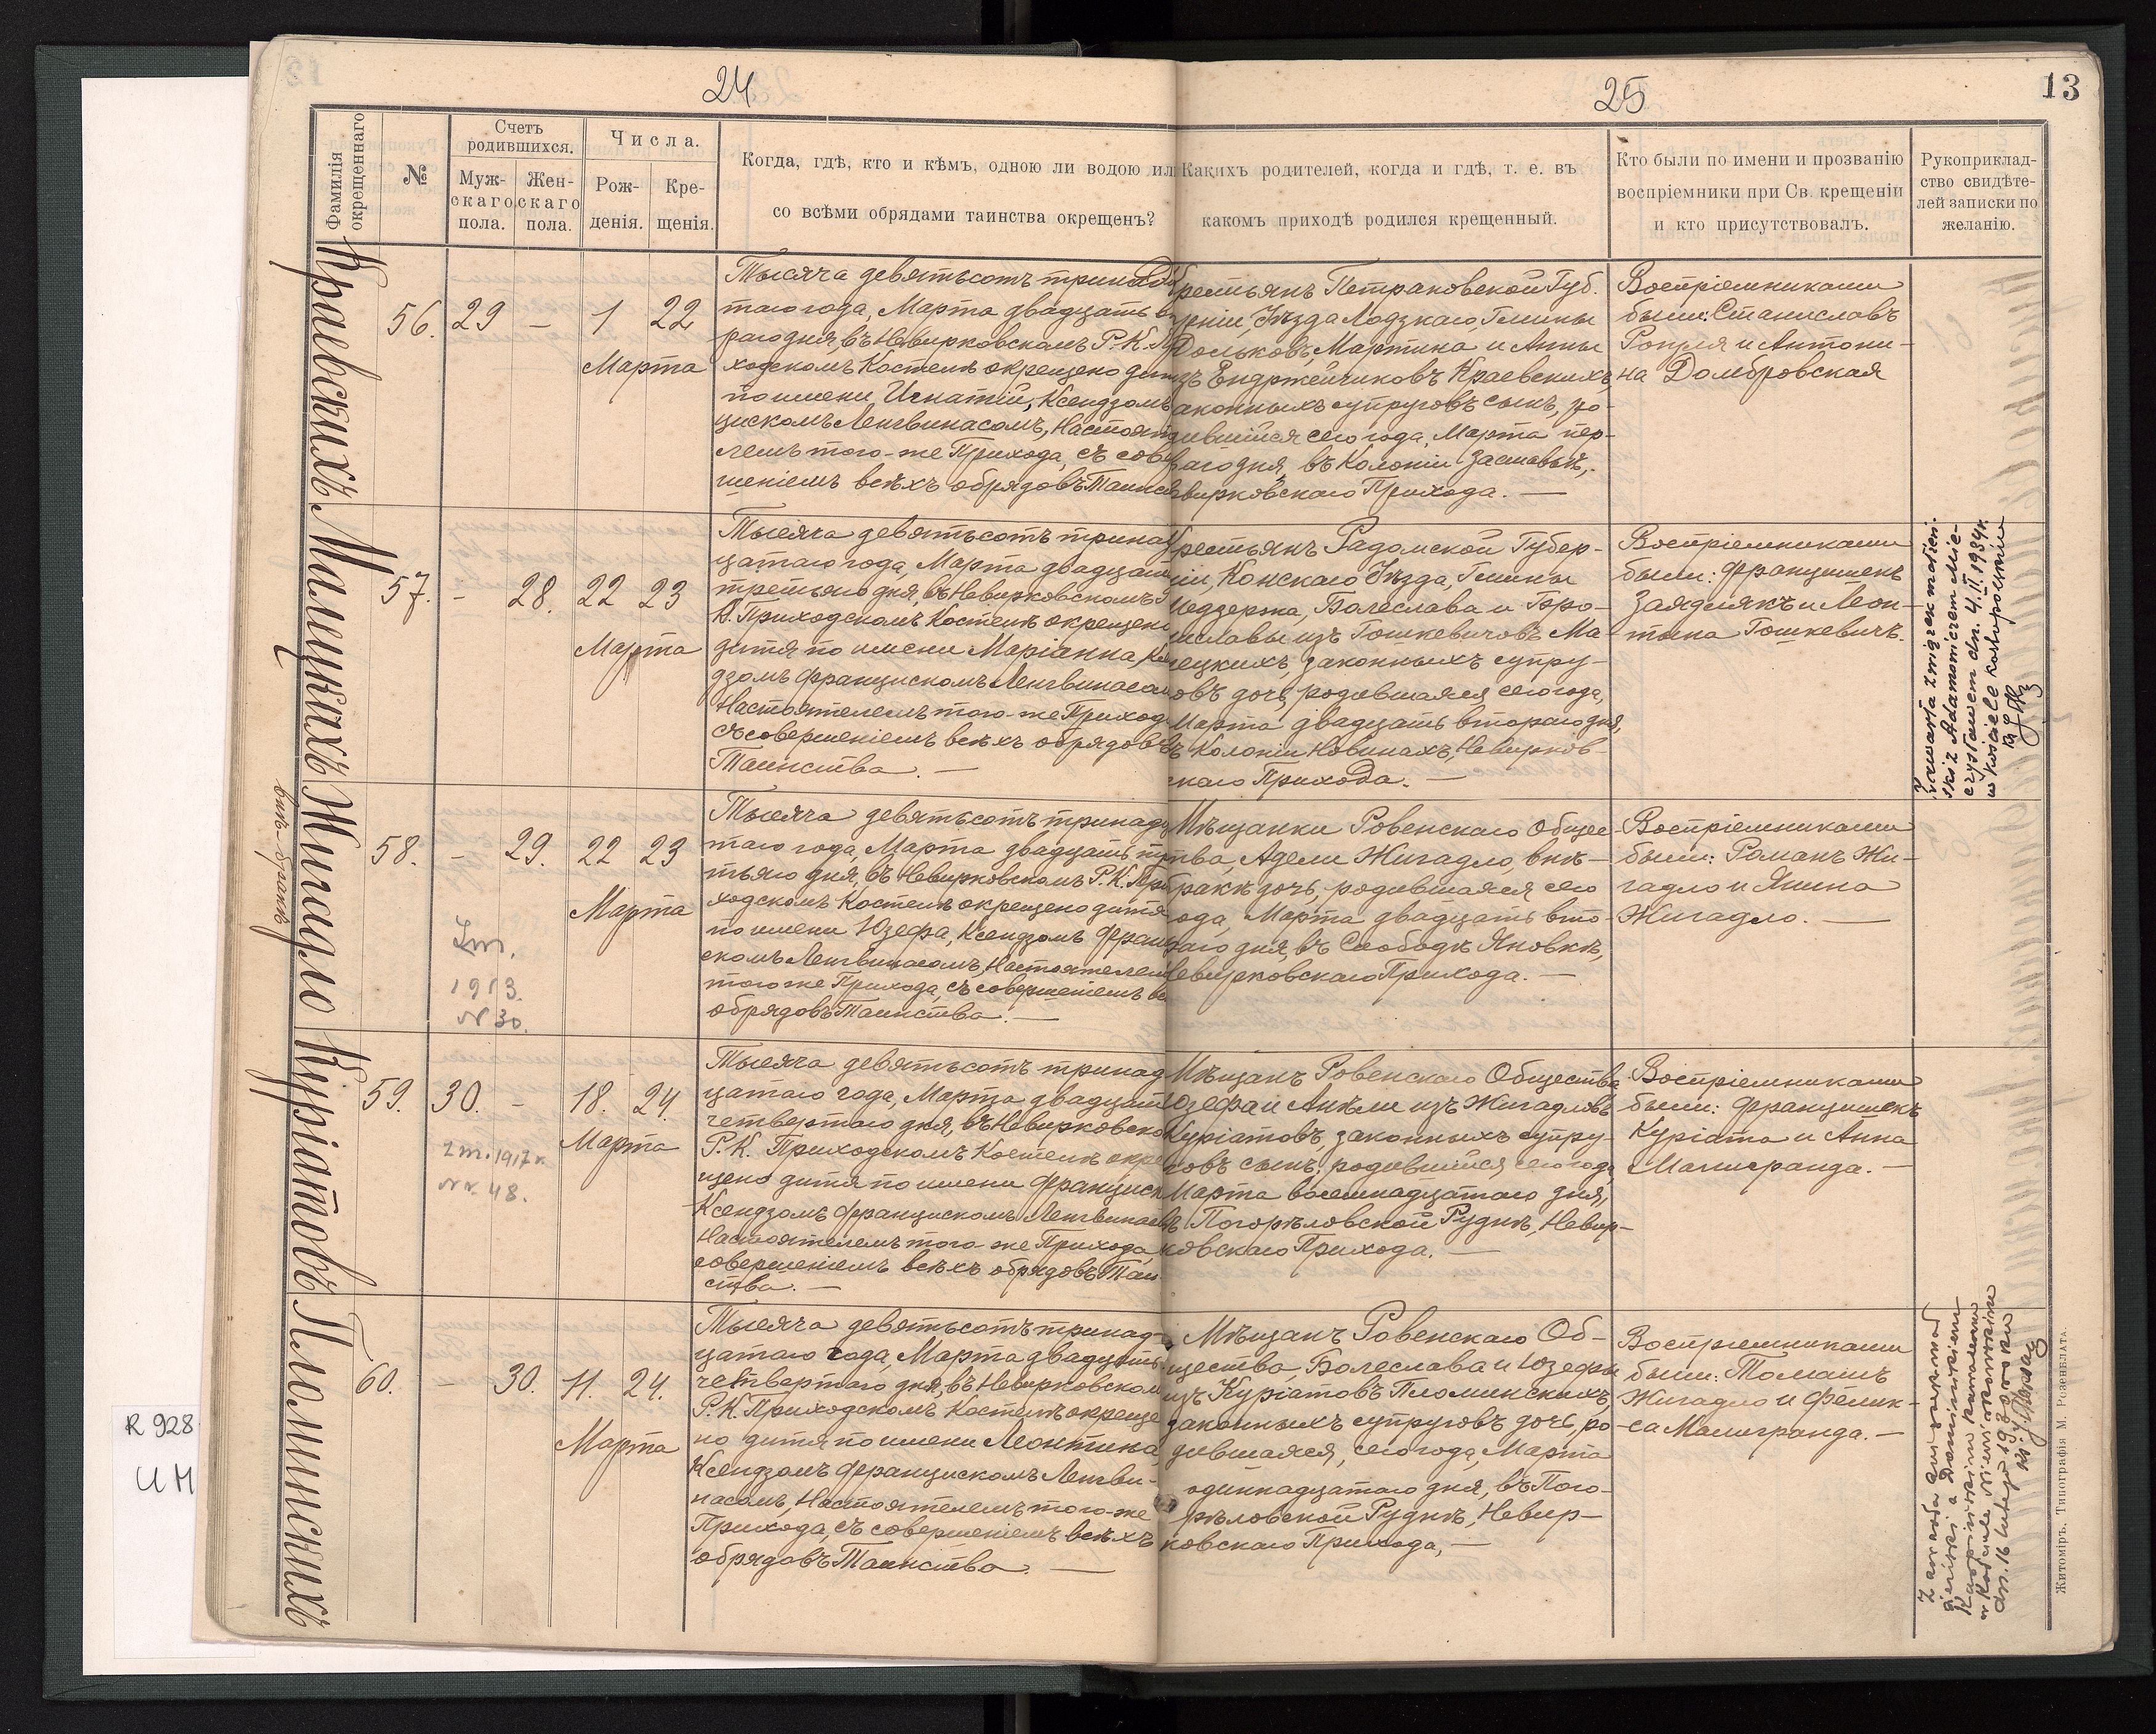 24
25
13
Фамилія окрещеннаго
№
Счетъ родившихся.
Муж-
скаго
пола.
Жен-
скаго
пола.
Числа.
Рож-
денія.
Кре-
щенія.
Когда, гдѣ, кто и кѣмъ, одною ли водою ил
со всѣми обрядами таинства окрещенъ?
Какихъ родителей, когда и гдѣ, т. е. въ
какомъ приходѣ родился крещенный.
Кто были по имени и прозванію
воспріемники при Св. крещеніи
и кто присутствовалъ.
Рукоприклад-
ство свидѣте-
лей записки по
желанію.
Краевскихъ
56. 29 — 1 22
Марта
Тысяча девятьсотъ тринад
таго года, Марта двадцать в
раго дня, въ Невирковскомъ Р. К. П
ходскомъ Костелѣ окрещено дит
по имени Игнатій, Ксендзомъ
цискомъ Ленгвинасомъ, Настоят
лемъ того-же Прихода, съ сов
шеніемъ всѣхъ обрядовъ Таинс
рестьянъ Петраковской Губ.
рніи, Уѣзда Лодзкаго Гмины
Дольковъ, Мартина и Анны
зъ Ендржейчиковъ Краевскихъ,
аконныхъ супруговъ сынъ, ро-
дившійся сего года, Марта пер-
ваго дня, въ Колоніи Заставьѣ,
вирковскаго Прихода. —
Воспріемниками
были: Станиславъ
Ропля и Антони-
на Домбровская
Малецкихъ
57. - 28. 22 23
Марта
Тысяча девятьсотъ тринад
цатаго года, Марта двадцат
третьяго дня, въ Невирковскомъ
К. Приходскомъ Костелѣ окрещено
дитя по имени Маріанна, Ксе
дзомъ Францискомъ Ленгвинасом
Настоятелемъ того-же Приход
съ совершеніемъ всѣхъ обрядовъ
Таинства. —
Крестьянъ Радомской Губер-
ніи, Конскаго Уѣзда, Гмины
Медзержа, Болеслава и Бро-
ниславы изъ Гошкевичовъ Ма-
лецкихъ, законныхъ супру-
овъ дочь, родившаяся сего года,
Марта двадцать втораго дня,
въ Колоніи Новинахъ, Невирков-
скаго Прихода. —
Воспріемниками
были: Францишекъ
Заяднякъ и Леон-
тина Гошкевичъ.
Zawarła związek małżeń-
ski z Adamowiczem Mie-
czysławem dn. 4. II 1934 r.
w kościele
Жигадло
внѣ-брачн
58. - 29. 22 23
Марта
Zm.
1913.
N 30.
Тысяча девятьсотъ тринадц
таго года, Марта двадцать тре
тьяго дня, въ Невирковскомъ Р. К. При
ходскомъ Костелѣ окрещено дитя
по имени Юзефа, Ксендзомъ Франц
скомъ Ленгвинасомъ, Настоятелем
того же Прихода, съ совершеніемъ вс
обрядовъ Таинства. —
Мѣщанки Ровенскаго Общес-
тва, Адели Жигадло, внѣ-
бракѣ дочь, родившаяся сего
ода, Марта двадцать вто-
раго дня, въ Слободѣ Яновкѣ,
Невирковскаго Прихода. —
Воспріемниками
были: Романъ Жи-
гадло и Янина
Жигадло. —
Куріатовъ
59. 30. - 18. 24.
Марта
Zm. 1917 r.
Nr. 48.
Тысяча девятьсотъ тринад
цатаго года, Марта двадцат
четвертаго дня, въ Невирковско
Р. К. Приходскомъ Костелѣ окре
щено дитя по имени Францискъ
Ксендзомъ Францискомъ Ленгвинасо
Настоятелемъ того-же Прихода,
совершеніемъ всѣхъ обрядовъ Таин
ства. —
Мѣщанъ Ровенскаго Общества
Юзефа и Анѣли изъ Жигадловъ
Куріатовъ, законныхъ супру-
говъ сынъ, родившійся сего года,
Марта восемнадцатаго дня,
въ Погорѣловской Руднѣ, Невир-
ковскаго Прихода. —
Воспріемниками
были: Францишекъ
Куріата и Анна
Малигранда. —
Пломинскихъ
60. - 30. 11. 24.
Марта
Тысяча девятьсотъ тринад-
цатаго года, Марта двадцать
четвертаго дня, въ Невирковском
Р. К. Приходскомъ Костелѣ окреще
но дитя по имени Леонтина,
Ксендзомъ Францискомъ Ленгви-
насомъ, Настоятелемъ того-же
Прихода, съ совершеніемъ всѣхъ
обрядовъ Таинства. —
Мѣщанъ Ровенскаго Об-
щества, Болеслава и Юзефы
изъ Куріатовъ Пломинскихъ,
законныхъ супруговъ дочь, ро-
дившаяся, сего года, Марта
одиннадцатаго дня, въ Пого-
рѣловской Руднѣ, Невир-
ковскаго Прихода, —
Воспріемниками
были: Томашъ
Жигадло и Фелик-
са Малигранда. —
Zawarła związek małż
żeński z Dominikiem
w Kościele
dn. 16 lutego 1938 roku
Житоміръ, Типографія М. Розенблата.
R 928